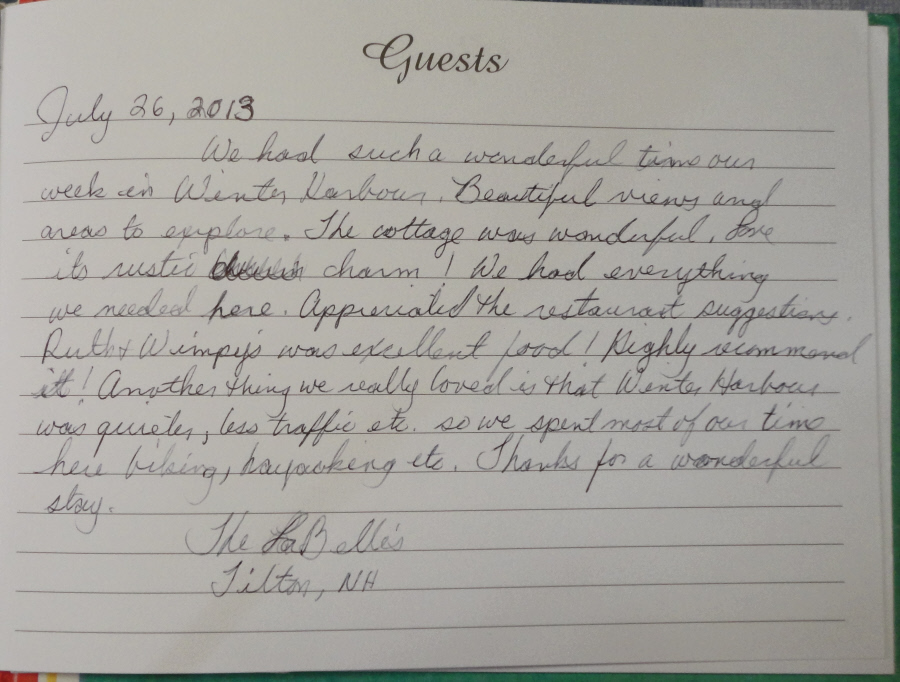 Guests
July 26, 2013
We had such a wonderful time our
week in Winter Harbour. Beautiful views and
areas to explore. The cottage was wonderful. Love
its rustic charm! We had everything
we needed here. Appreciated the restaurant suggestions.
Ruth & Wimpy's was excellent food! Highly recommend
it! Another thing we really loved is that Winter Harbour
was quieter, less traffic etc. so we spent most of our time
here biking, kayaking etc. Thanks for a wonderful
stay.
The LaBelle's
Tilton, NH